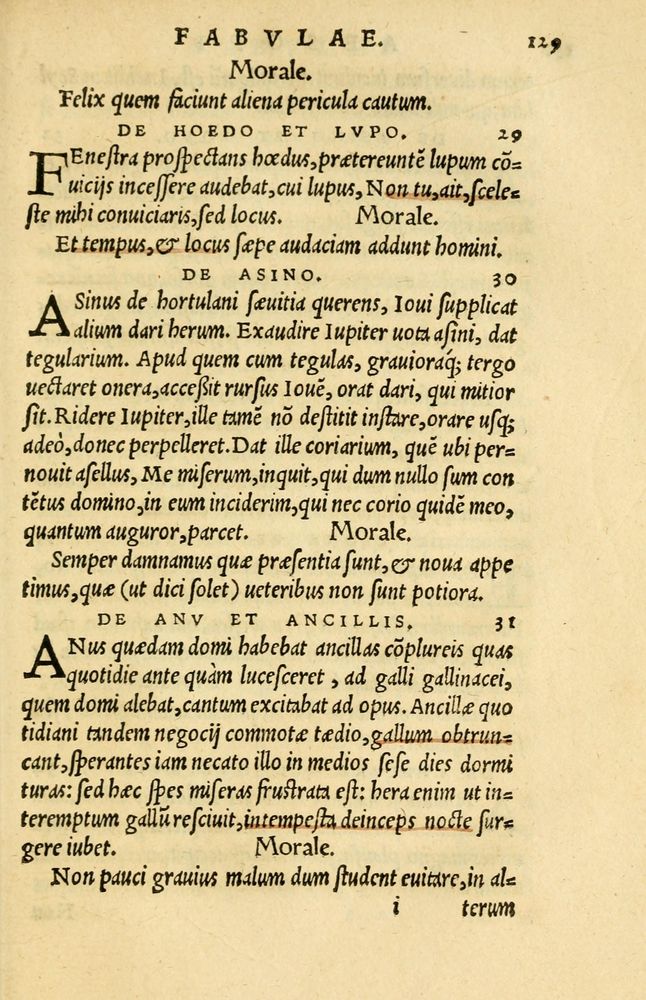 FABVLAE. 129
Morale.
Felix quem faciunt aliena pericula cautum.
DE HOEDO ET LVPO. 29
FEnestra prospectans hœdus, prætereuntẽ lupum cõ=
uicijs incessere audebat, cui lupus, Non tu, ait, scele=
ste mihi conuiciaris, sed locus. Morale.
Et tempus, & locus sæpe audaciam addunt homini.
DE ASINO. 30
ASinus de hortulani sæuitia querens, Ioui supplicat
alium dari herum. Exaudire Iupiter uota asini, dat
tegularium. Apud quem cum tegulas, grauioraq; tergo
uectaret onera, acceßit rursus Iouẽ, orat dari, qui mitior
sit. Ridere Iupiter, ille tamẽ nõ destitit instare, orare usq;
adeò, donec perpelleret. Dat ille coriarium, quẽ ubi per=
nouit asellus, Me miserum, inquit, qui dum nullo sum con
tẽtus domino, in eum inciderim, qui nec corio quidẽ meo,
quantum auguror, parcet. Morale.
Semper damnamus quæ præsentia sunt, & noua appe
timus, quæ (ut dici solet) ueteribus non sunt potiora.
DE ANV ET ANCILLIS. 31
ANus quædam domi habebat ancillas cõplureis quas
quotidie ante quàm lucesceret, ad galli gallinacei,
quem domi alebat, cantum excitabat ad opus. Ancillæ quo
tidiani tandem negocij commotæ tædio, gallum obtrun=
cant, sperantes iam necato illo in medios sese dies dormi
turas: sed hæc spes miseras frustrata est: hera enim ut in=
teremptum gallũ resciuit, intempesta deinceps nocte sur=
gere iubet. Morale.
Non pauci grauius malum dum student euitare, in al=
i terum